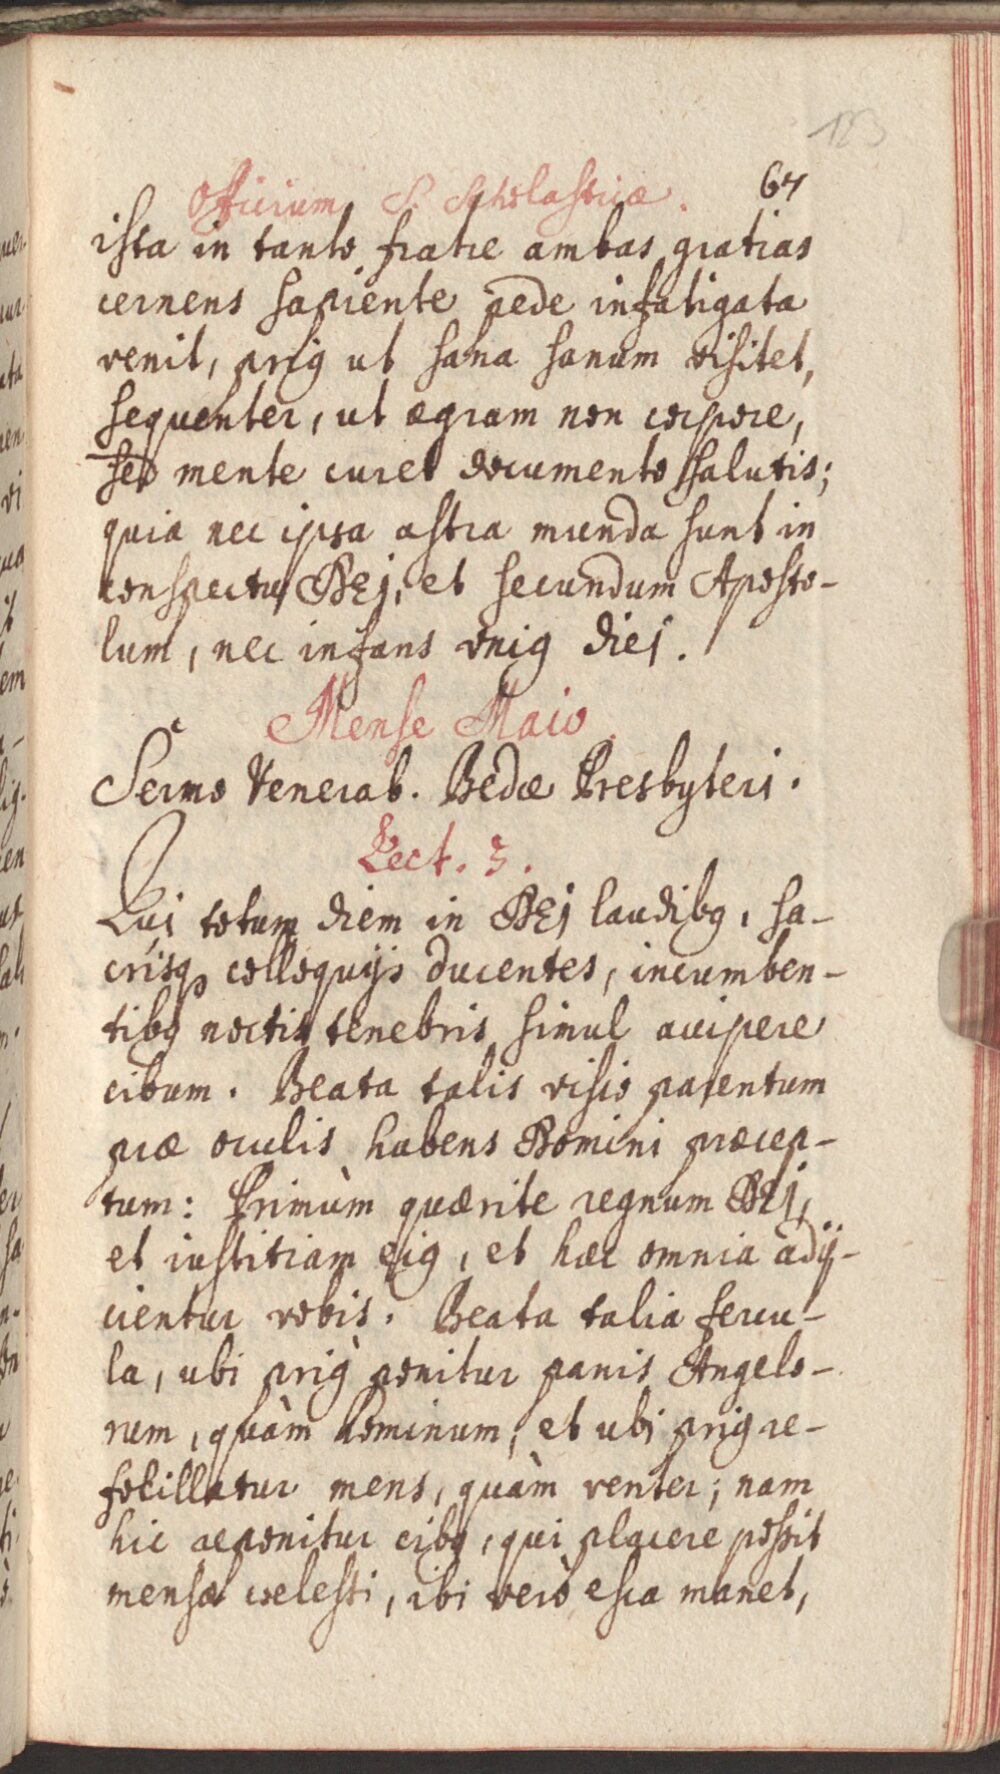 123
Officium S. Scholasticæ. 64
ista in tanto fratre ambas gratias
cernens sapiente pede infatigata
venit, prig ut sana sanum visitet,
sequenter, ut ægram non corpore,
sed mente curet documento salutis;
quia nec ipsa astra munda sunt in
conspectu DEj, et secundum Aposto-
lum, nec infans unig diej.
Mense Maio.
Sermo Venerab. Bedæ Presbyteri.
Lect. 3.
Qui totum diem in DEj laudibg, sa-
crisq colloquijs ducentes, incumben-
tibg noctis tenebris simul accipere
cibum. Beata talis visio parentum
præ oculis habens Domini præcep-
tum: Primùm quærite regnum DEj,
et iustitiam eig, et hæc omnia adij-
cientur vobis. Beata talia fercu-
la, ubi prig ponitur panis Angelo-
rum, quàm hominum, et ubi prig re-
focillatur mens, quàm venter; nam
hic reponitur cibg, qui placere possit
mensæ coelesti, ibi verò esca manet,